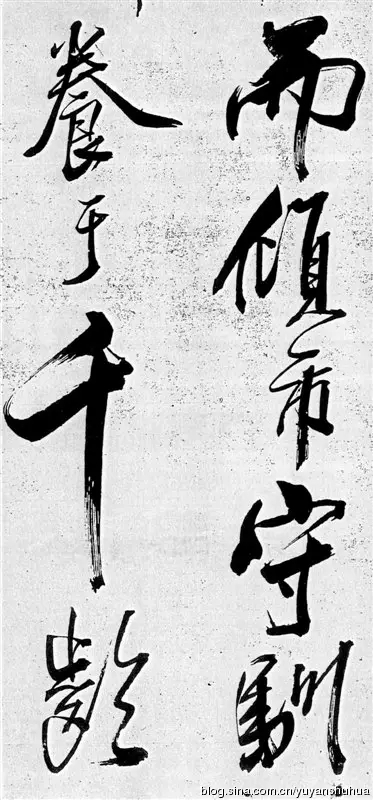 而傾市守馴
養于千齡
blog.sina.com.cn/yuyanshuhua